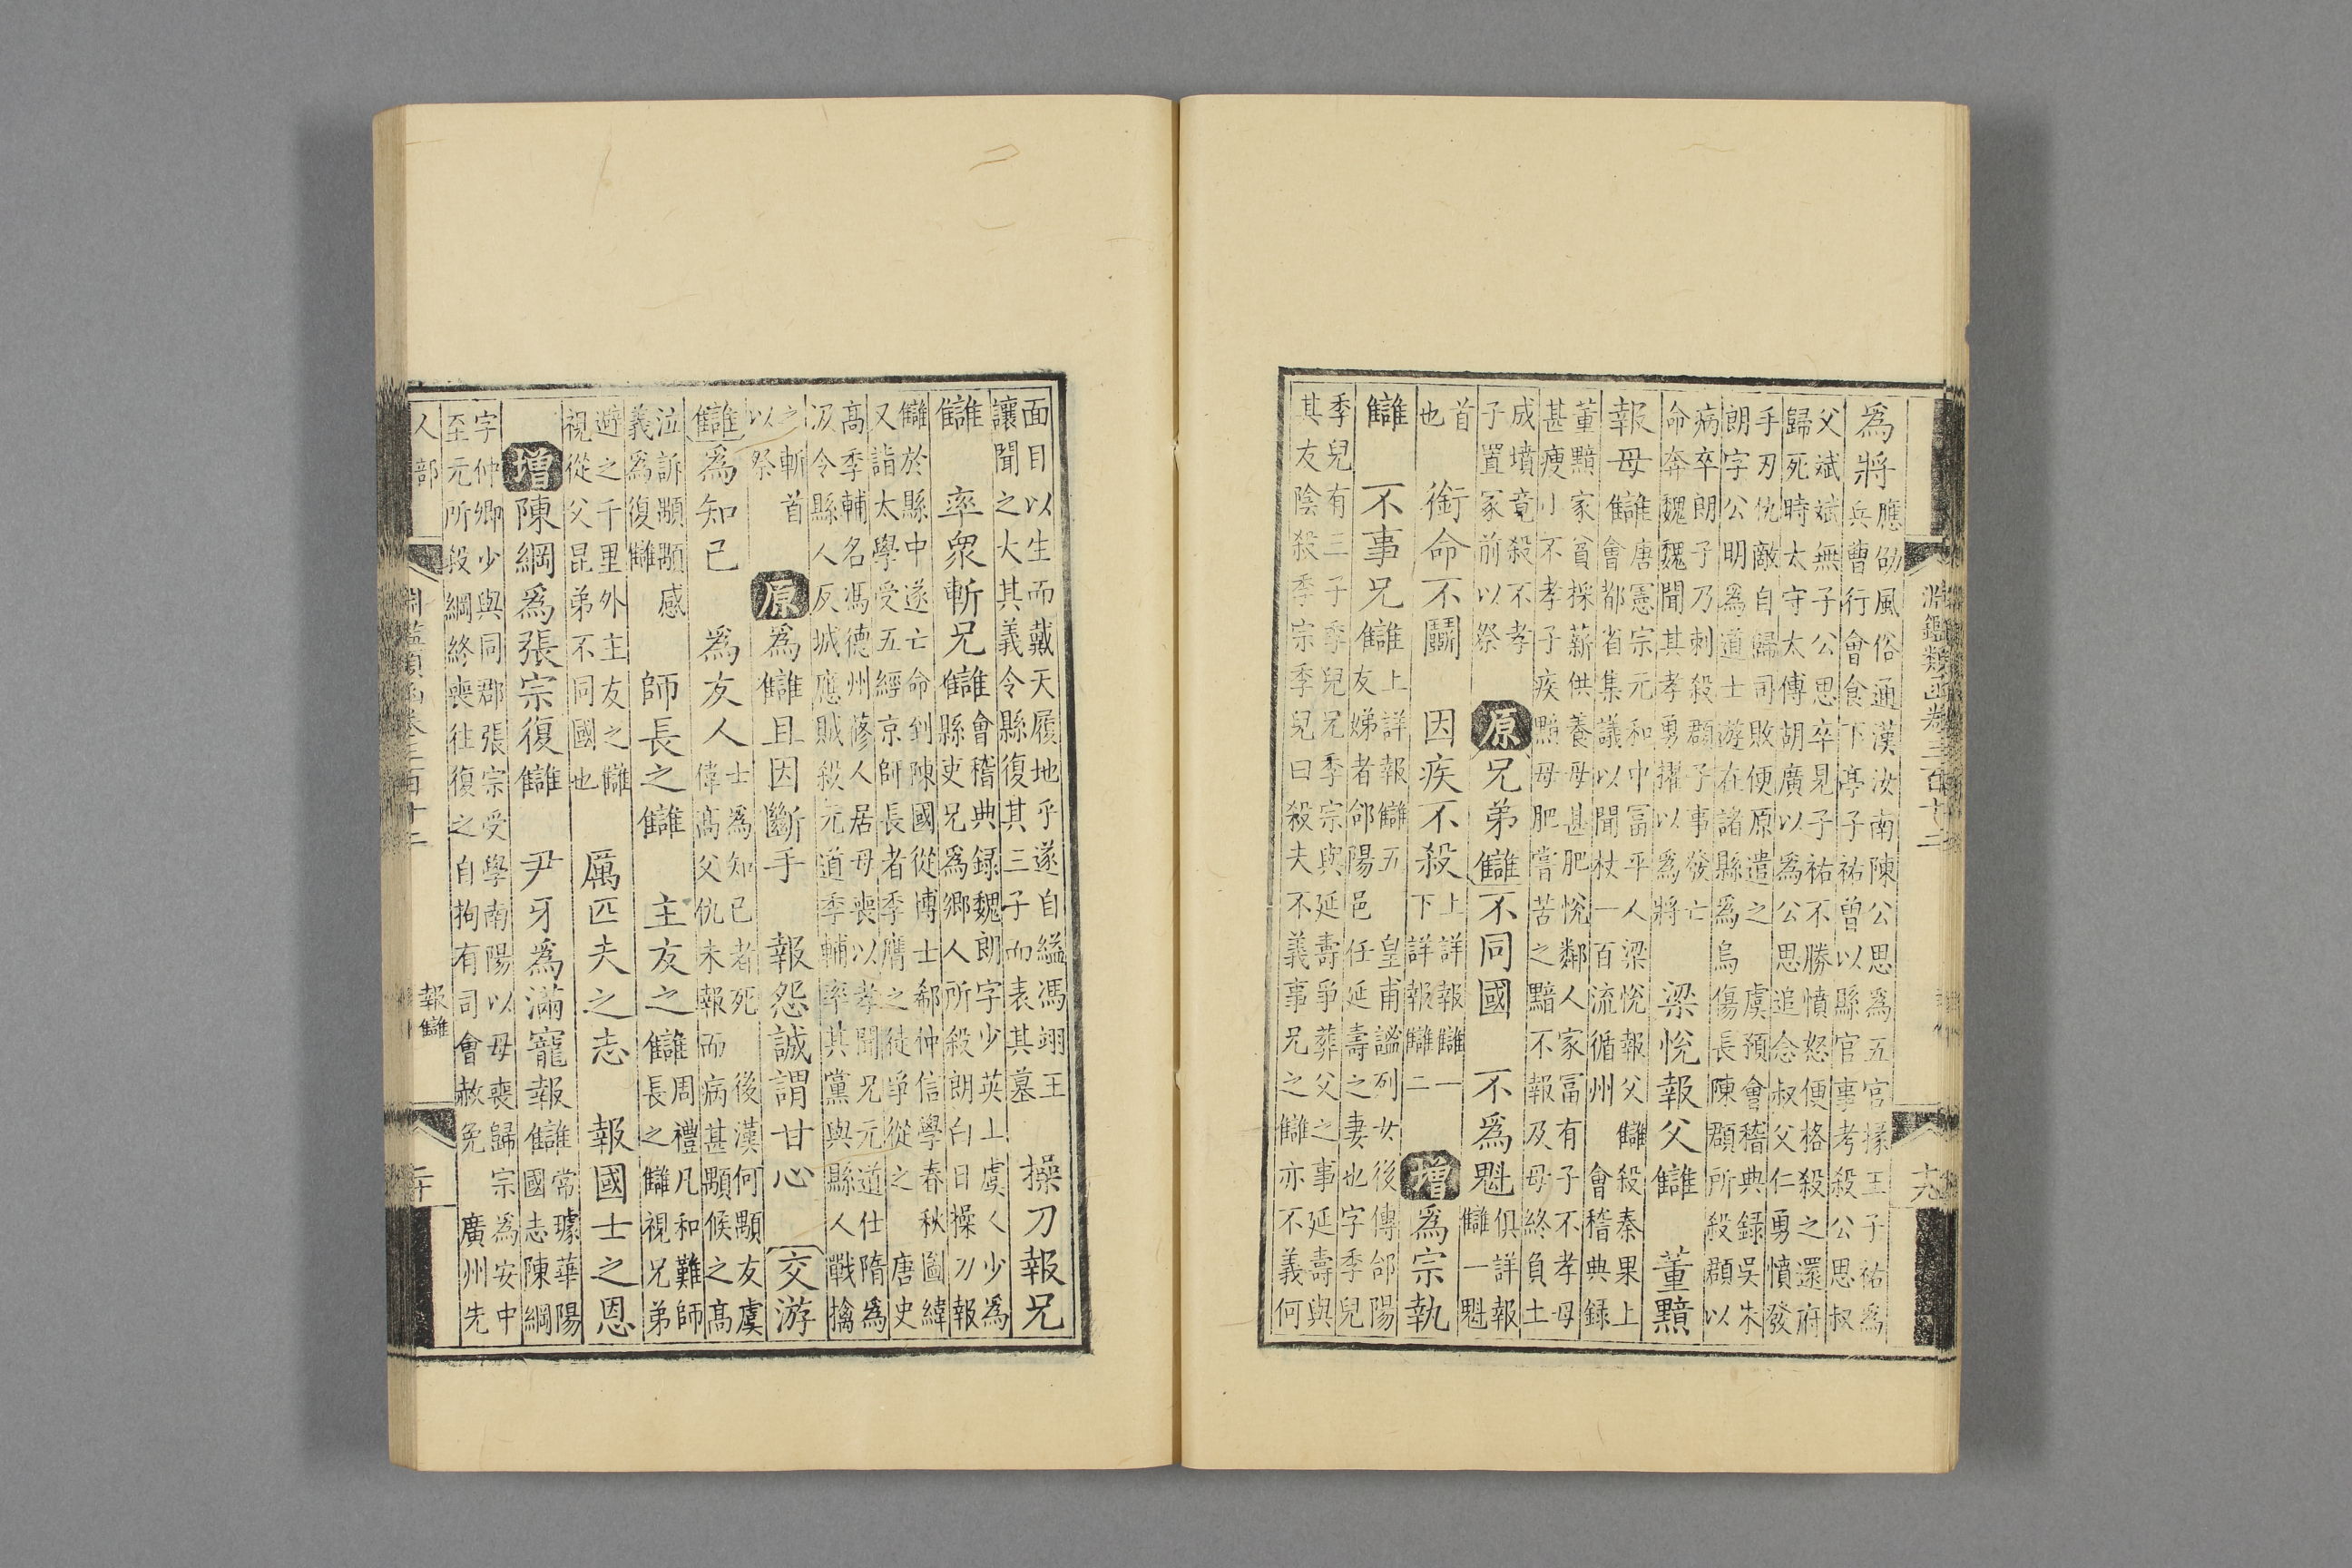 淵鑑類函卷三百十二
十九
為將應劭風俗通漢汝南陳公思為五官掾王子祐為
兵曹行會食下亭子祐曾以縣官事考殺公思叔
父斌斌無子公思卒見子祐不勝憤怒便格殺之還府
歸死時太守太傅胡廣以為公思追念叔父仁勇憤發
手刃仇敵自歸司敗便原遣之 虞預會稽典錄吳朱
朗字公明為道士游在諸縣為烏傷長陳頵所殺頵以
病卒朗子乃刺殺頵子事發亡
命奔魏魏聞其孝勇擢以為將
梁悅報父讎 董黯
報母讎唐憲宗元和中冨平人梁悅報父讎殺秦果上
會都省集議以聞杖一百流循州 會稽典錄
董黯家貧採薪供養母甚肥悅鄰人家冨有子不孝母
甚瘦小不孝子疾黯母肥嘗苦之黯不報及母終負土
成墳竟殺不孝
子置冢前以祭
原兄弟讎 不同國 不為魁俱詳報
讎一魁
首
也
銜命不鬭 因疾不殺上詳報讎一
下詳報讎二
增為宗執
讎 不事兄讎上詳報讎五 皇甫謐列女後傳郃陽
友娣者郃陽邑任延壽之妻也字季兒
季兒有三子季兒兄季宗與延壽爭葬父之事延壽與
其友陰殺季宗季兒曰殺夫不義事兄之讎亦不義何
面目以生而戴天履地乎遂自縊馮翊王
讓聞之大其義令縣復其三子而表其墓
操刀報兄
讎 率衆斬兄讎會稽典錄魏朗字少英上虞人少為
縣吏兄為鄉人所殺朗白日操刀報
讎於縣中遂亡命到陳國從博士郗仲信學春秋圖緯
又詣太學受五經京師長者李膺之徒爭從之 唐史
高季輔名馮德州蓚人居母喪以孝聞兄元道仕隋為
汲令縣人反城應賊殺元道季輔率其黨與縣人戰擒
之斬首
以祭
原為讎且因斷手 報怨誠謂甘心 交游
讎 為知已 為友人士為知已者死 後漢何顒友虞
偉高父仇未報而病甚顒候之高
泣訴顒顒感
義為復讎
師長之讎 主友之讎周禮凡和難師
長之讎視兄弟
避之千里外主友之讎
視從父昆弟不同國也
厲匹夫之志 報國士之恩
增陳綱為張宗復讎 尹牙為滿寵報讎常璩華陽
國志陳綱
字仲卿少與同郡張宗受學南陽以母喪歸宗為安中
至元所殺綱終喪往復之自拘有司會赦免 廣州先
人部
報讎
二十